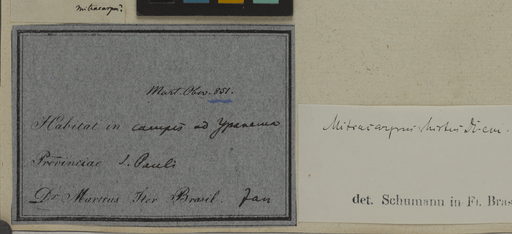 mitracarpus?
Mart. Obs. 851.
Habitat in campis ad Ypanema
Provinciae S. Pauli
Dr. Martius Iter Brasil. Jan
Mitracarpus hirtus
det. Schumann in Fl. Bras